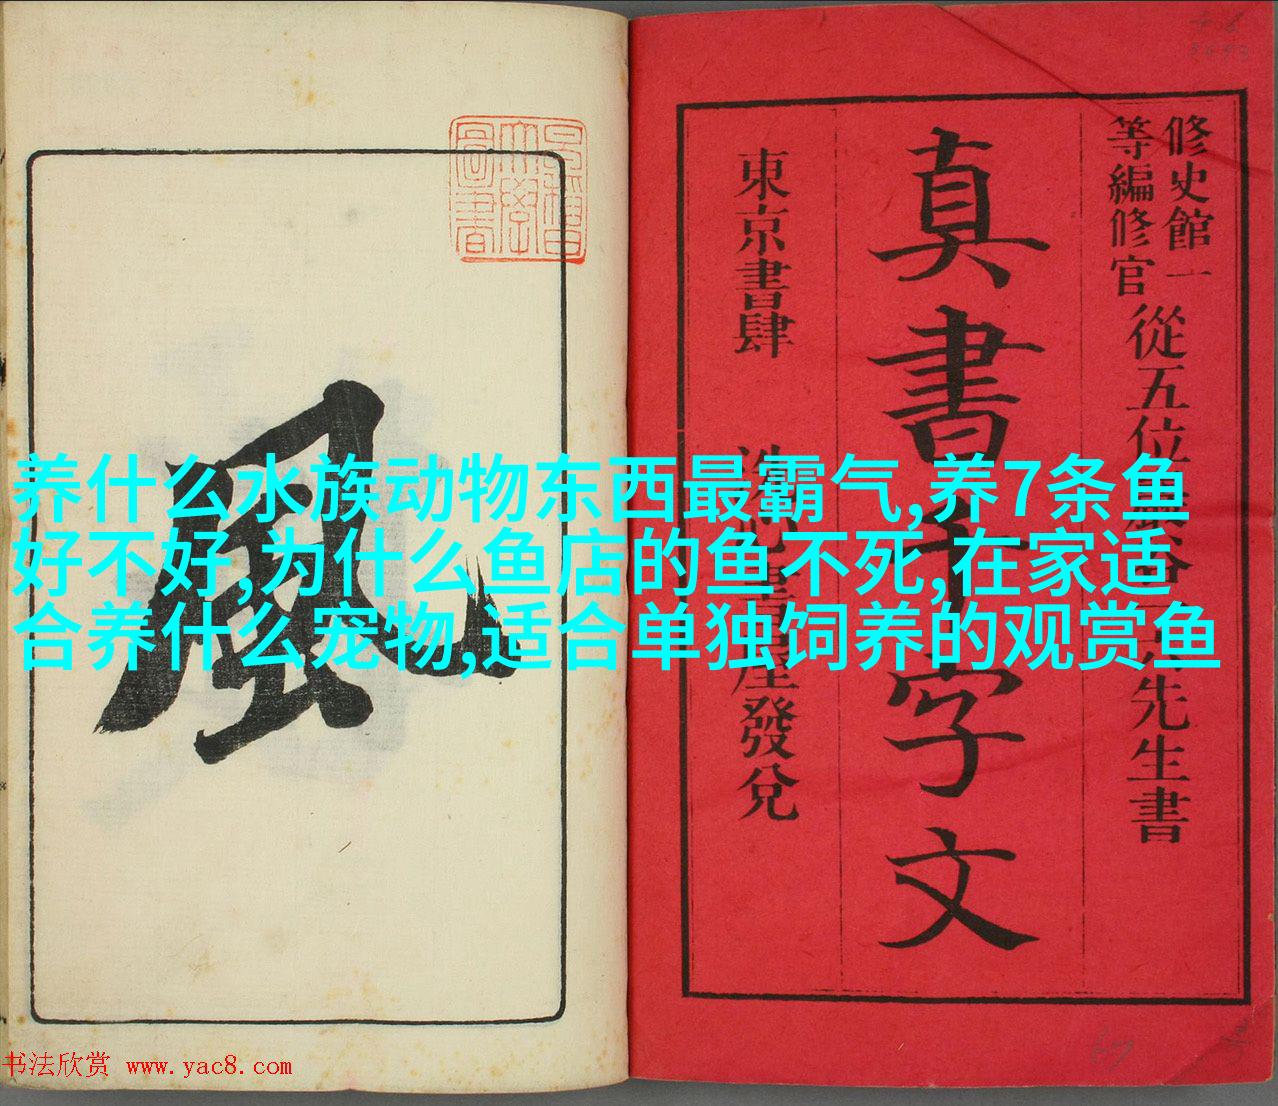 修史館一
等編修官
從五位 先生書
真書千字文
東京書肆 發兌
風
养什么水族动物东西最霸气,养7条鱼
好不好,为什么鱼店的鱼不死,在家适
合养什么宠物,适合单独饲养的观赏鱼
书法欣赏 www.yac8.com